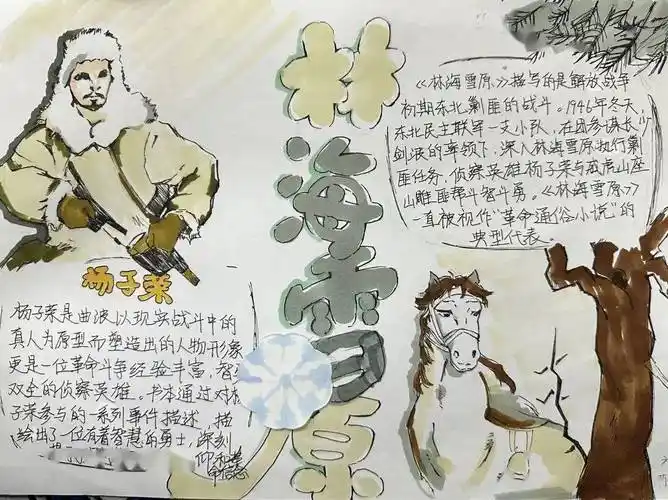 林海雪原
《林海雪原》描写的是解放战争
初期东北剿匪的战斗。1946年冬天，
东北民主联军一支小队，在团参谋长少
剑波的率领下，深入林海雪原执行剿
匪任务，侦察英雄杨子荣与威虎山座
山雕匪帮斗智斗勇。《林海雪原》
一直被视作“革命通俗小说”的
典型代表。
杨子荣
杨子荣是曲波以现实战斗中的
真人为原型而塑造出的人物形象
更是一位革命斗争经验丰富，智
双全的侦察英雄。书本通过对杨
子荣参与的一系列事件描述，描
绘出了一位有着智慧的勇士，深刻